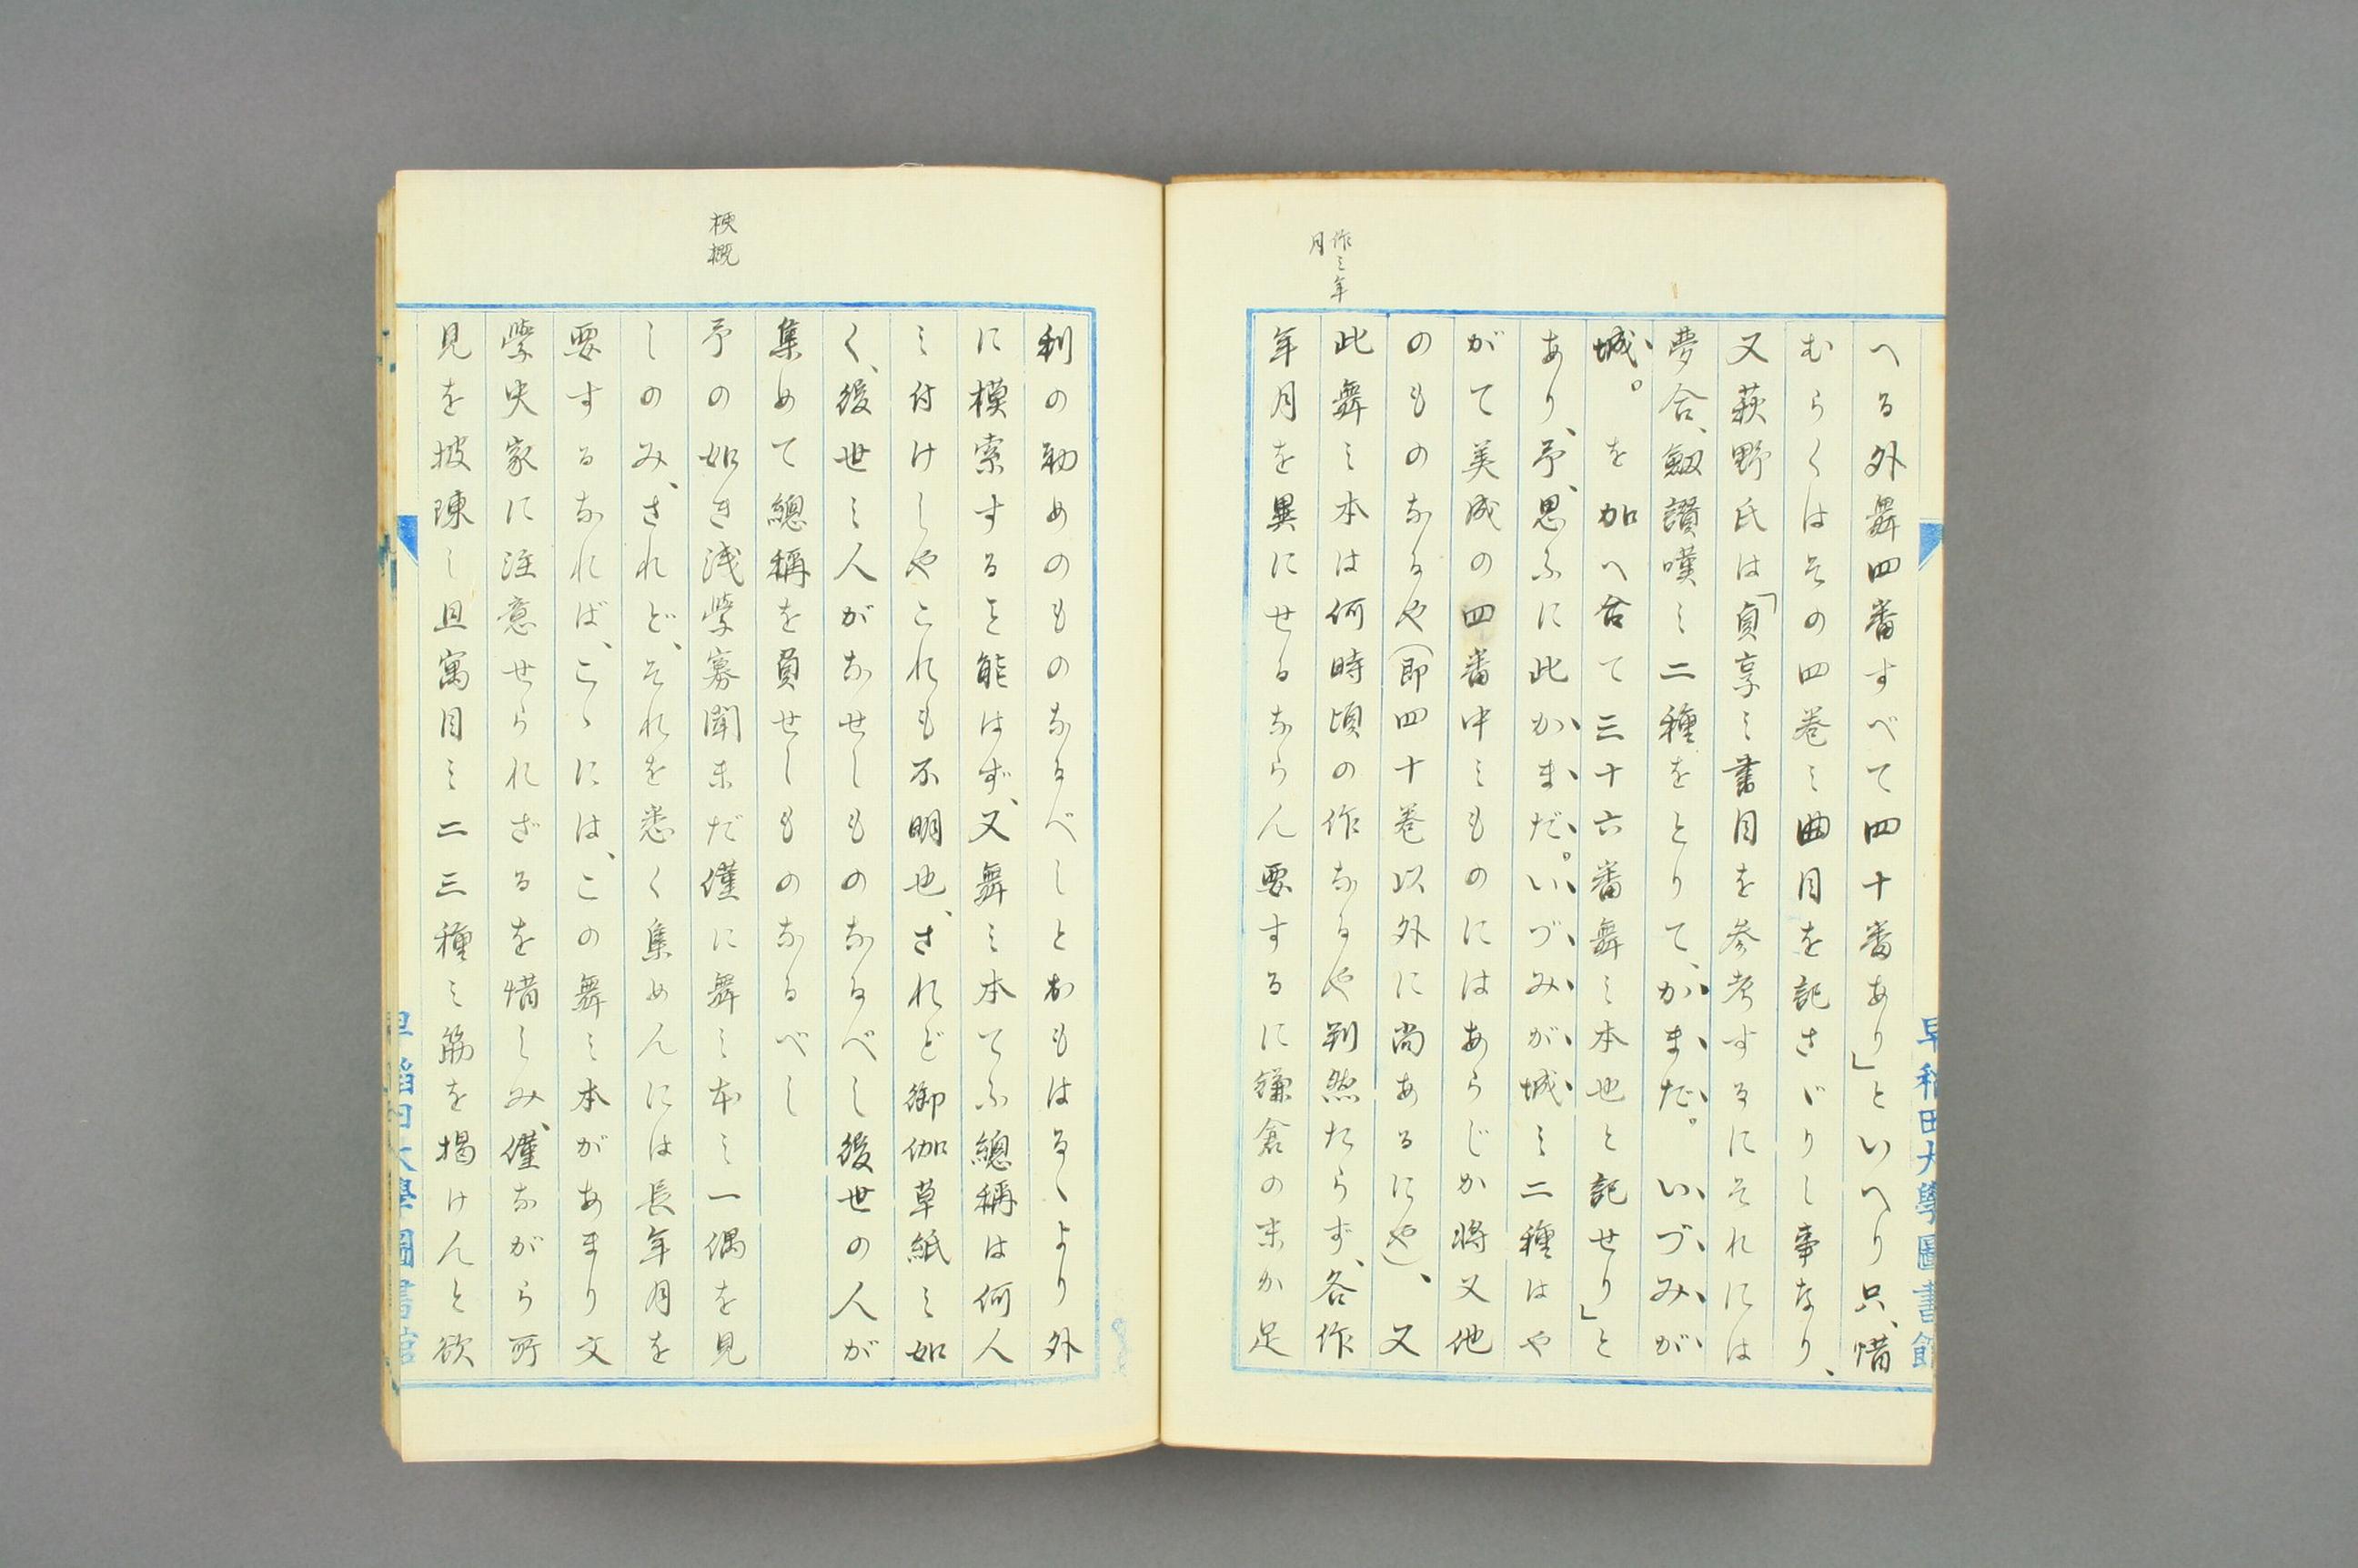 作之年
月
へる外舞四番すべて四十番あり」といへり只、惜
むらくはその四巻之曲目を記さゞりし事なり、
又萩野氏は「貞享之書目を参考するにそれには
夢合、劔讃嘆之二種をとりて、かまだ。いづみが
城。を加へ合て三十六番舞之本也と記せり」と
あり、予、思ふに此かまだ。いづみが城之二種はや
がて美成の四番中之ものにはあらじか将又他
のものなるや(即四十巻以外に尚あるにや)、又
此舞之本は何時頃の作なるや判然たらず、各作
年月を異にせるならん要するに鎌倉の末か足
早稲田大學圖書館
梗概
利の初めのものなるべしとおもはるゝより外
に模索すること能はず、又舞之本てふ總稱は何人
之付けしやこれも不明也、されど御伽草紙之如
く、後世之人がなせしものなるべし後世の人が
集めて總稱を負せしものなるべし
予の如き浅学寡聞未だ僅に舞之本之一偶を見
しのみ、されど、それを悉く集めんには長年月を
要するなれば、こゝには、この舞之本があまり文
学史家に注意せられざるを惜しみ、僅ながら所
見を披陳し且寓目之二三種之筋を掲けんと欲
早稲田大學圖書館